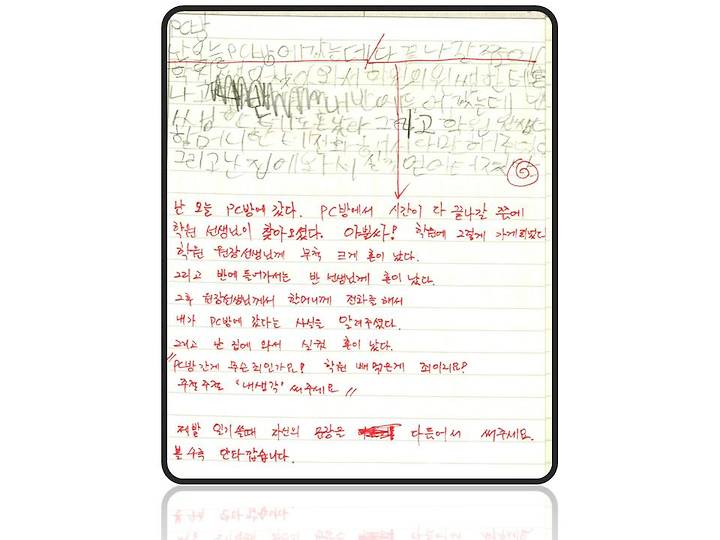 PC방
난 오늘 PC방에 갔는데 다 끝나갈 쯤에
나고 내 반에 들어갔는데
한테도 혼났다 그리고
할머니한테 전화
그리고 난 집에 와서 실컷 얻어터졌다
난 오늘 PC방에 갔다. PC방에서 시간이 다 끝나갈 쯤에
학원 선생님이 찾아오셨다. 아뿔싸! 학원에 그렇게 가게되었다
학원 원장선생님께 무척 크게 혼이 났다.
그리고 반에 들어가서는 반 선생님께 혼이 났다.
그후 원장선생님께서 할머니께 전화를 해서
내가 PC방에 갔다는 사실을 알려주셨다.
그리고 난 집에 와서 실컷 혼이 났다.
"PC방 간게 무슨 죄인가요? 학원 빼먹은게 죄이지요?
주절주절 '내생각' 써주세요"
제발 일기쓸때 자신의 문장을 다듬어서 써주세요.
볼수록 안타깝습니다.